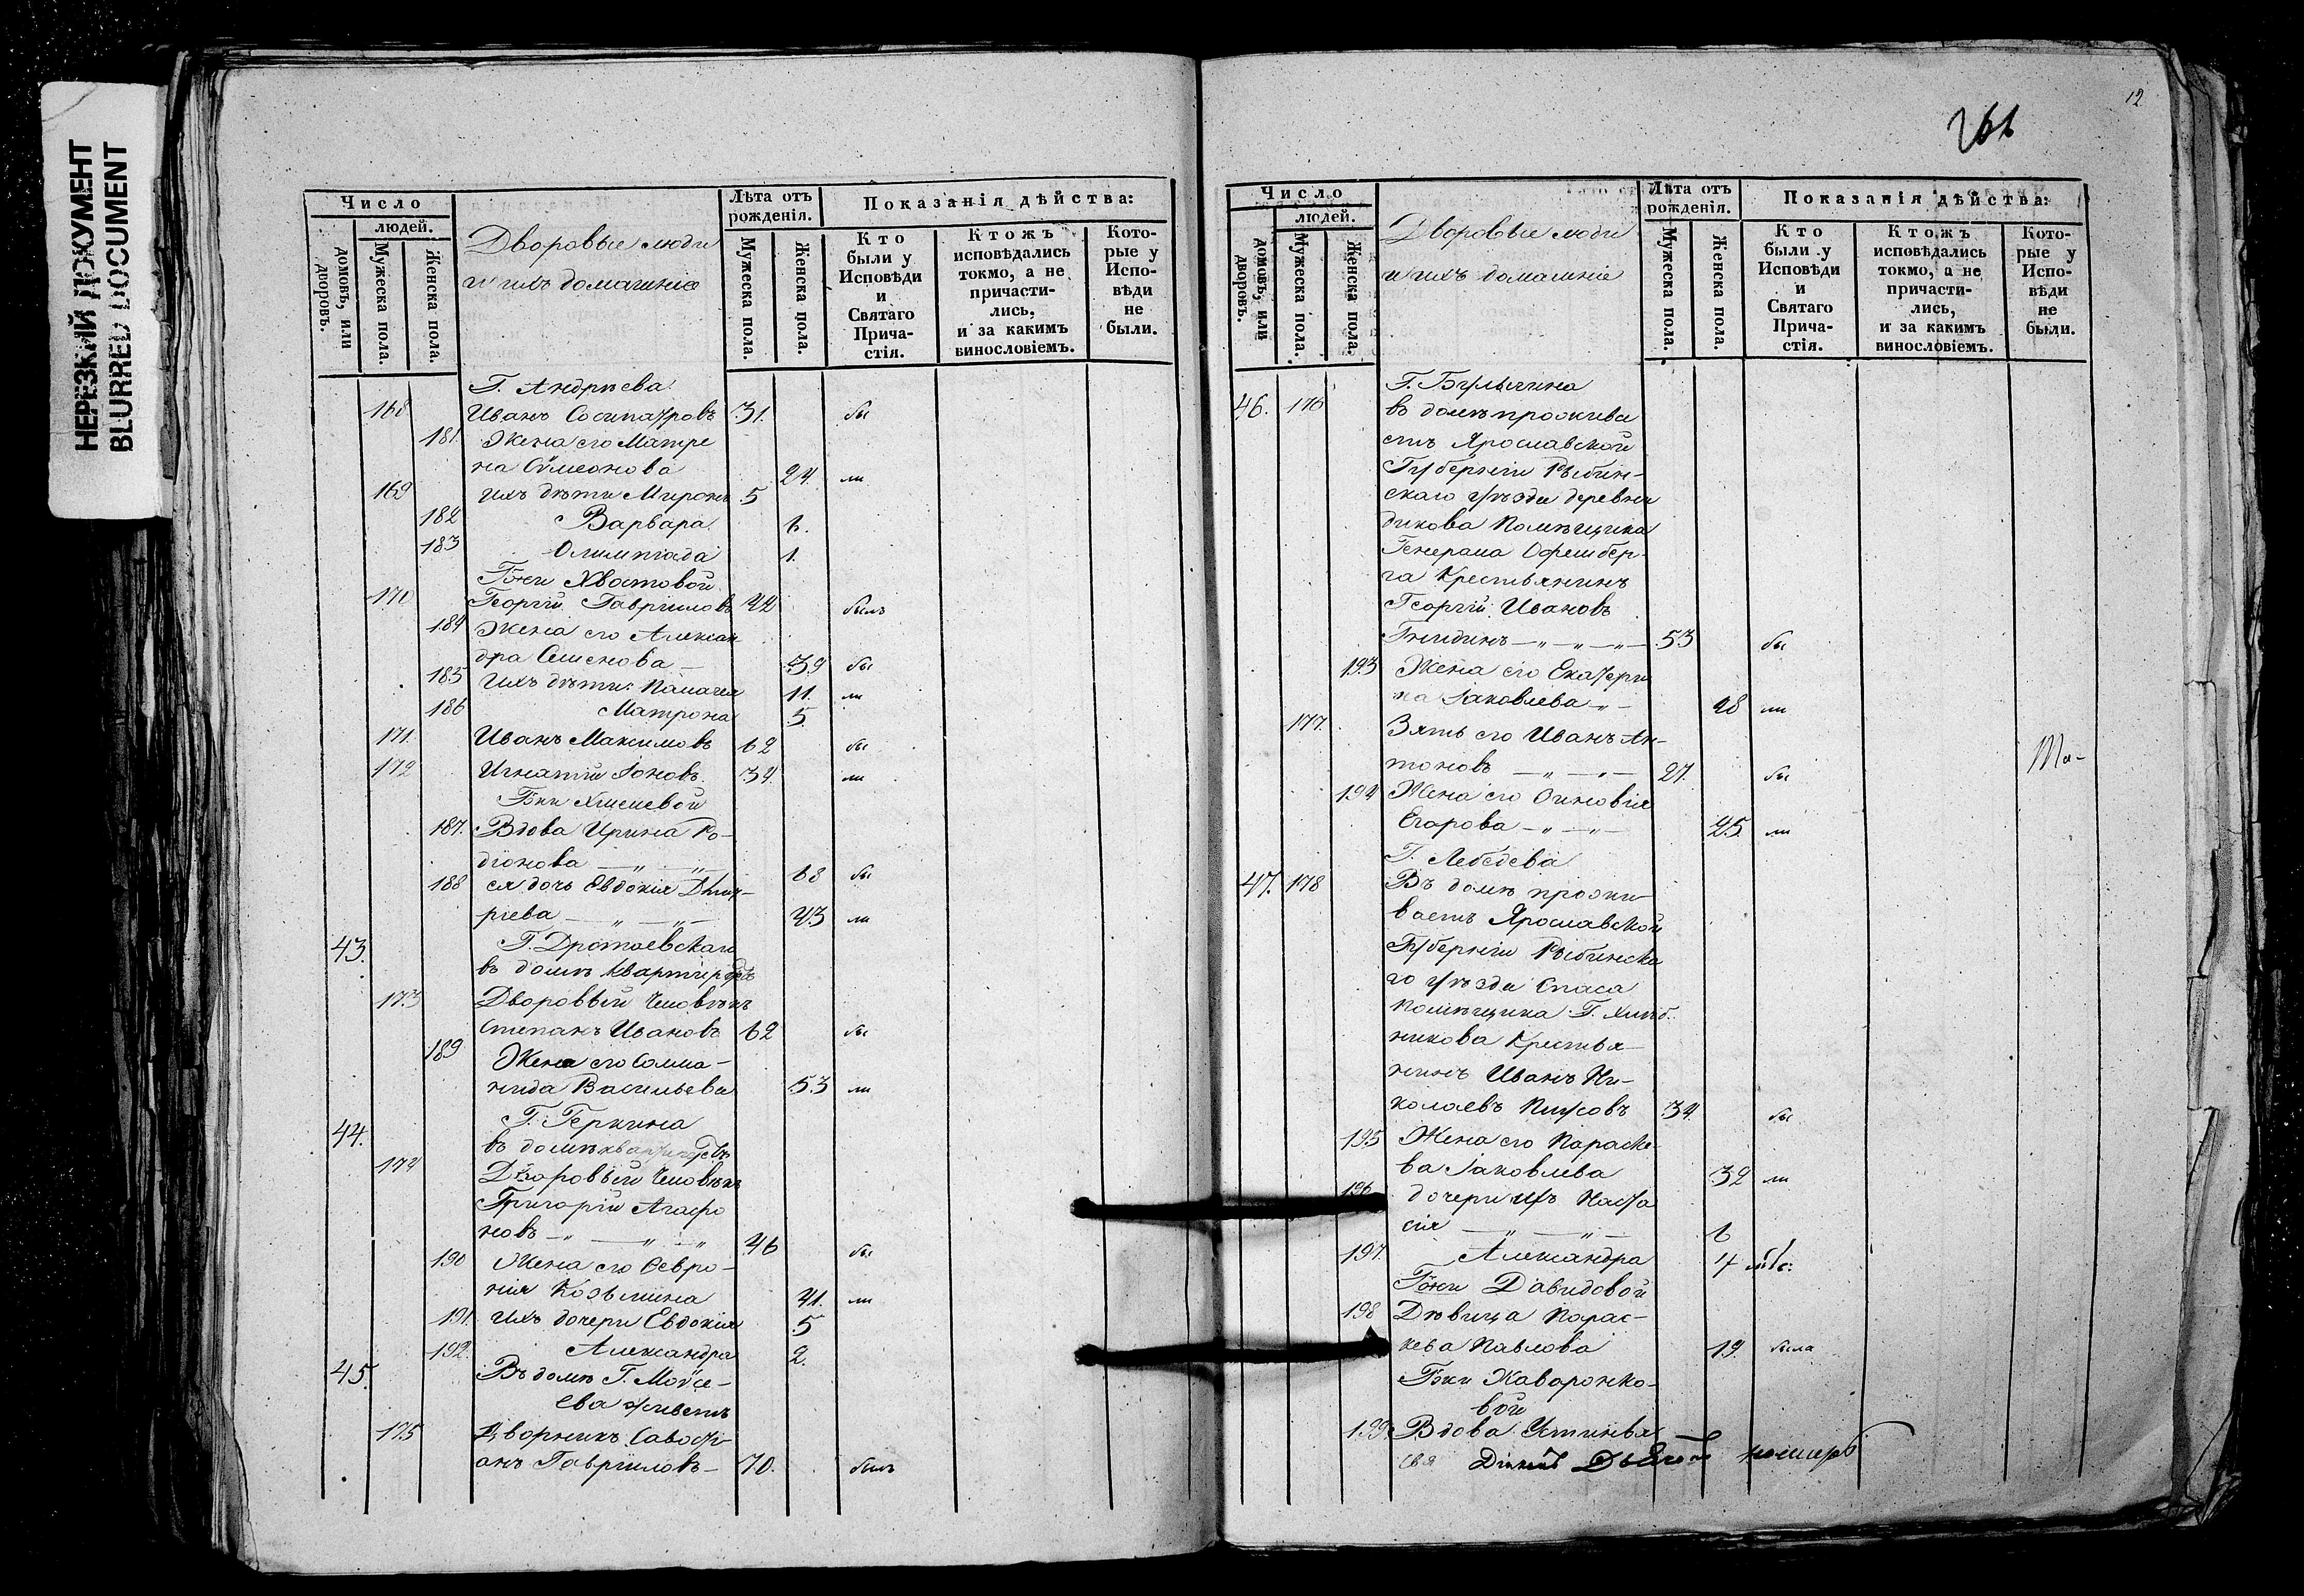 НЕРЕЗКИЙ ДОКУМЕНТ
BLURRED DOCUMENT
Число
людей.
домовъ, или дворовъ.
Мужеска пола.
Женска пола.
Дворовые люди
и ихъ домашніе
Лѣта отъ рожденія.
Мужеска пола.
Женска пола.
Показанія дѣйства:
Кто были у Исповѣди и Святаго Прича-стія.
Ктожъ исповѣдались токмо, а не причасти-лись, и за какимъ винословіемъ.
Кото-рые у Испо-вѣди не были.
Г. Андреева
168 Иванъ Сосипатровъ 31. бы
181. Жена его Матре
на Сѵмеонова 24. ли
169 ихъ дѣти Миронъ 5
182 Варвара 6.
183 Олимпіада 1.
Гжи Хвостовой
170 Георгій Гавріиловъ 42 былъ
184 Жена его Алексан
дра Семенова — 39 бы
185 Ихъ дѣти: Палагея 11. ли
186 Матрона 5.
171. Иванъ Максимовъ 62 бы
172 Игнатій Іоновъ. 34. ли
Гжи
187. Вдова Ирина Ро-
діонова — „ — „ — 68 бы
188 ея дочь Евдокія Дмит-
ріева — „ — „ — 43 ли
43. Г.
въ домѣ
173 Дворовый Человѣкъ
Степанъ Ивановъ 62 бы
189 Жена его Солмо-
нида Васильева 53 ли
44. Г. Геркина
въ домѣ
174 Дворовый Человѣкъ
Григорій Агафо
новъ — „ — „ — „ 46 бы
190 Жена его Февро-
нія Козьмина 41. ли
191. Ихъ дочери Евдокія 5
192. Александра 2.
45. Въ домѣ Г. Моѵсе-
ева живетъ
175 Дворникъ Савості-
анъ Гавріиловъ — 70. былъ
12
Число
людей.
домовъ, или дворовъ.
Мужеска пола.
Женска пола.
Дворовые люди
и ихъ домашніе
Лѣта отъ рожденія.
Мужеска пола.
Женска пола.
Показанія дѣйства:
Кто были у Исповѣди и Святаго Прича-стія.
Ктожъ исповѣдались токмо, а не причасти-лись, и за какимъ винословіемъ.
Кото-рые у Испо-вѣди не были.
Г. Булыгина
46. 176 въ домѣ прожива
етъ Ярославской
Губерніи Рыбин-
скаго уѣзда деревни
дикова Помѣщика
Генерала
га Крестьянинъ
Георгій Ивановъ
— „ — „ — „ — 53 бы
193 Жена его Екатери
на Іаковлева — „ — 48 ли
177. Зять его Иванъ Ан-
тоновъ — „ — „ — 27. бы
194 Жена его Зиновія
Егорова — „ — „ — 25 ли
Г. Лебедева
47. 178 Въ домѣ прожи-
ваетъ Ярославской
Губерніи Рыбинска
го уѣзда Спаса
помѣщика Г. Хлѣб-
никова Крестья-
нинъ Иванъ Ни-
колаевъ 34. бы
195 Жена его Параске-
ва Іаковлева 32 ли
196 дочери ихъ Наста
сія — „ — „ — 6
197. Александра 4
Гжи Давидовой
198 Дѣвица Парас-
кева Павлова 19. была
Гжи Жаворонко-
вой
199. Вдова Устинья